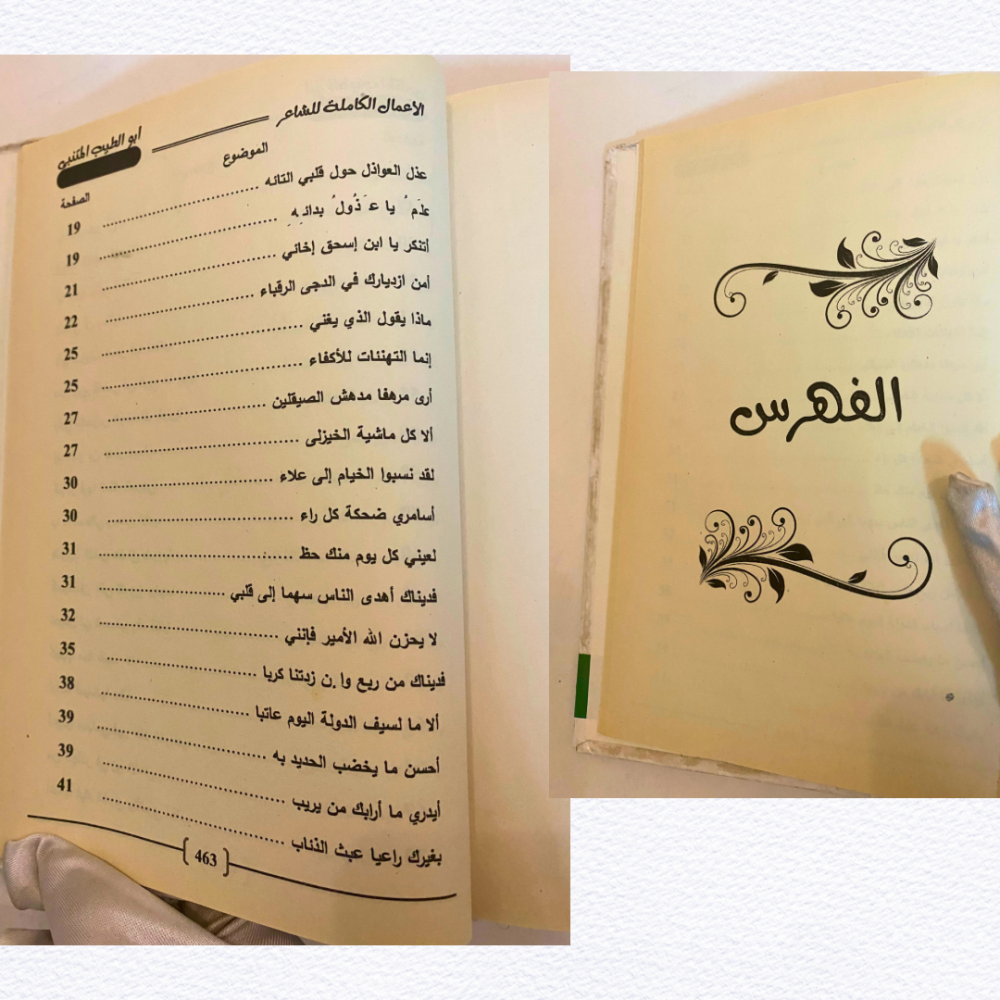 الفهرس
الأعمال الكاملة للشاعر أبو الطيب المتنبي
الموضوع الصفحة
عذل العواذل حول قلبي التائه ........ 19
يا ع َ ذُول ُ بدائـِهِ ........ 19
أتنكر يا ابن إسحق إخائي ........ 21
أمن ازديارك في الدجى الرقباء ........ 22
ماذا يقول الذي يغني ........ 25
إنما التهنئات للأكفاء ........ 25
أرى مرهفا مدهش الصيقلين ........ 27
ألا كل ماشية الخيزلى ........ 27
لقد نسبوا الخيام إلى علاء ........ 30
أسامري ضحكة كل راء ........ 30
لعيني كل يوم منك حظ ........ 31
فديناك أهدى الناس سهما إلى قلبي ........ 31
لا يحزن الله الأمير فإنني ........ 32
فديناك من ربع وإ.ن زدتنا كربا ........ 35
ألا ما لسيف الدولة اليوم عاتبا ........ 38
أحسن ما يخضب الحديد به ........ 39
أيدري ما أرابك من يريب ........ 39
بغيرك راعيا عبث الذئاب ........ 41
463